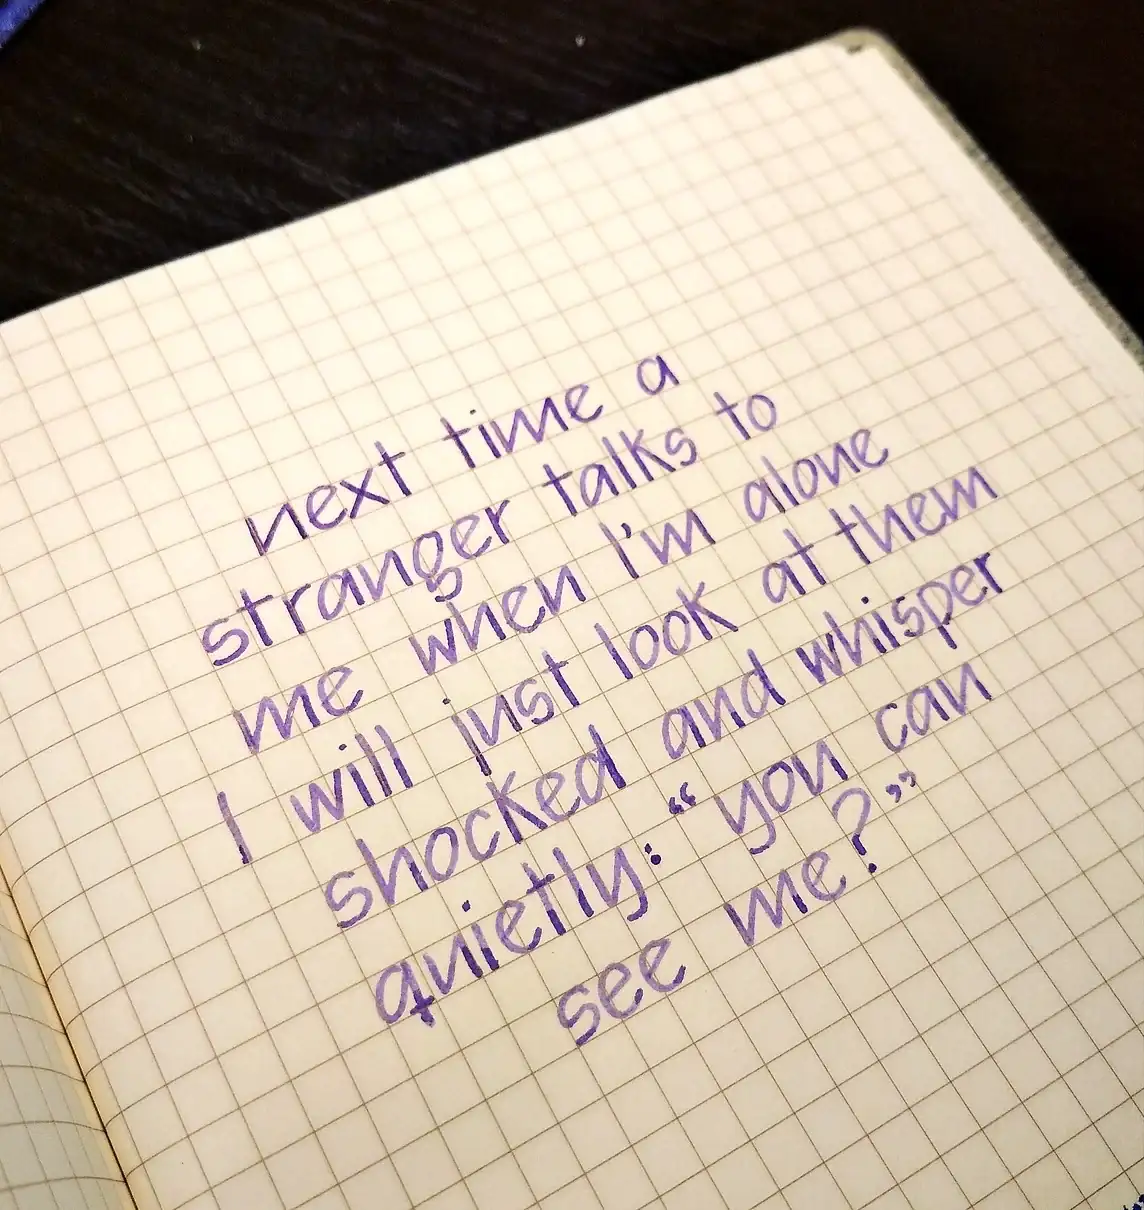 next time a
stranger talks to
me when I'm alone
I will just look at them
shocked and whisper
quietly: “you can
see me?”